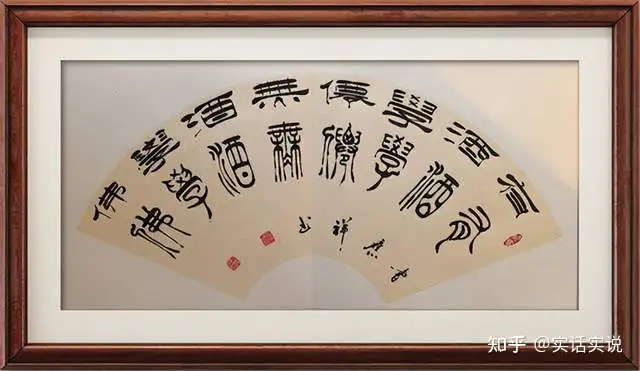 有酒學僊無酒學佛
有酒學僊無酒學佛
祥
知乎 @实话实说